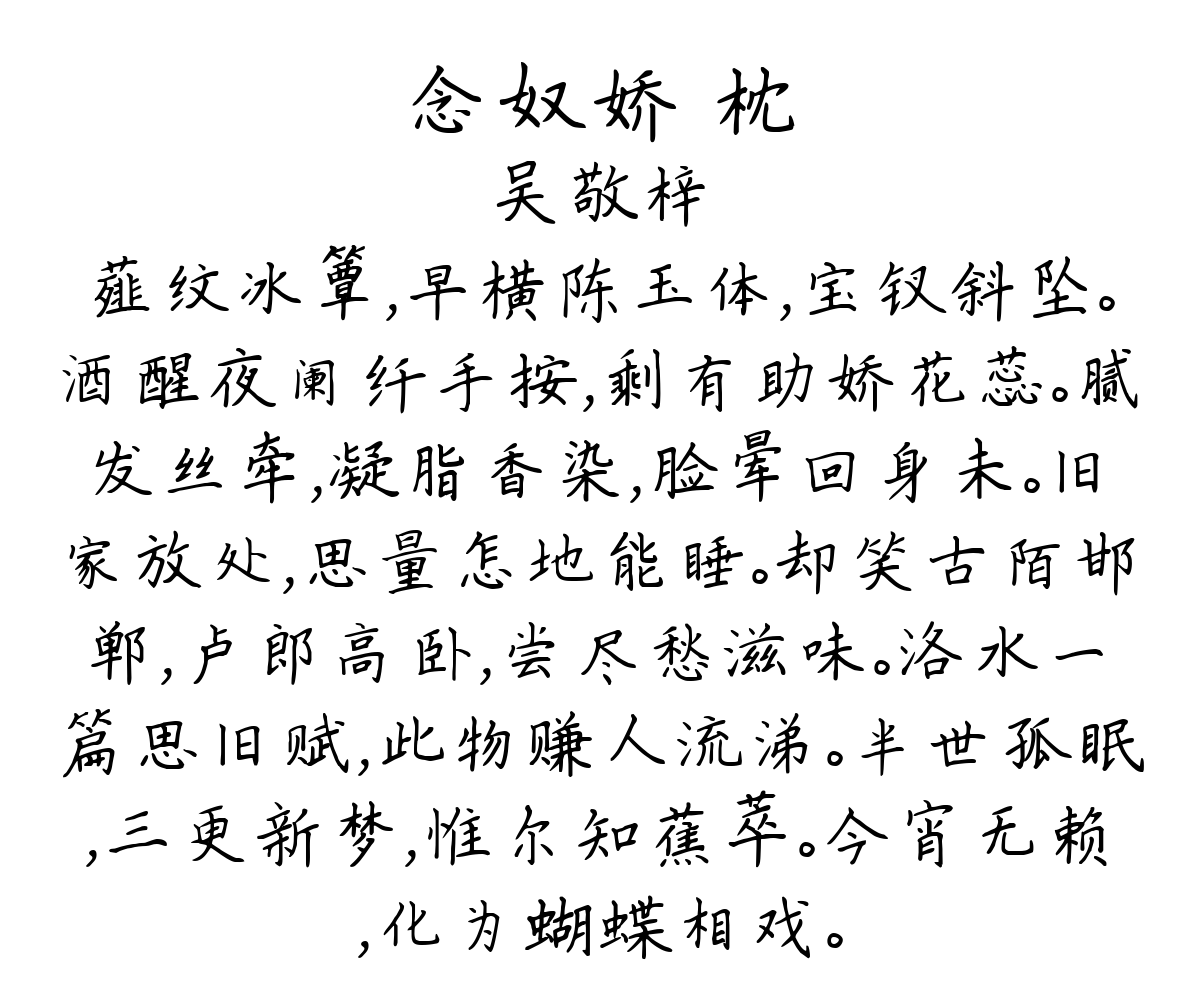 念奴娇 枕
吴敬梓
薤纹冰簟,早横陈玉体,宝钗斜坠。
酒醒夜阑纤手按,剩有助娇花蕊。腻
发丝牵,凝脂香染,脸晕回身未。旧
家放处,思量怎地能睡。却笑古陌邯
郸,卢郎高卧,尝尽愁滋味。洛水一
篇思旧赋,此物赚人流涕。半世孤眠
,三更新梦,惟尔知蕉萃。今宵无赖
,化为蝴蝶相戏。